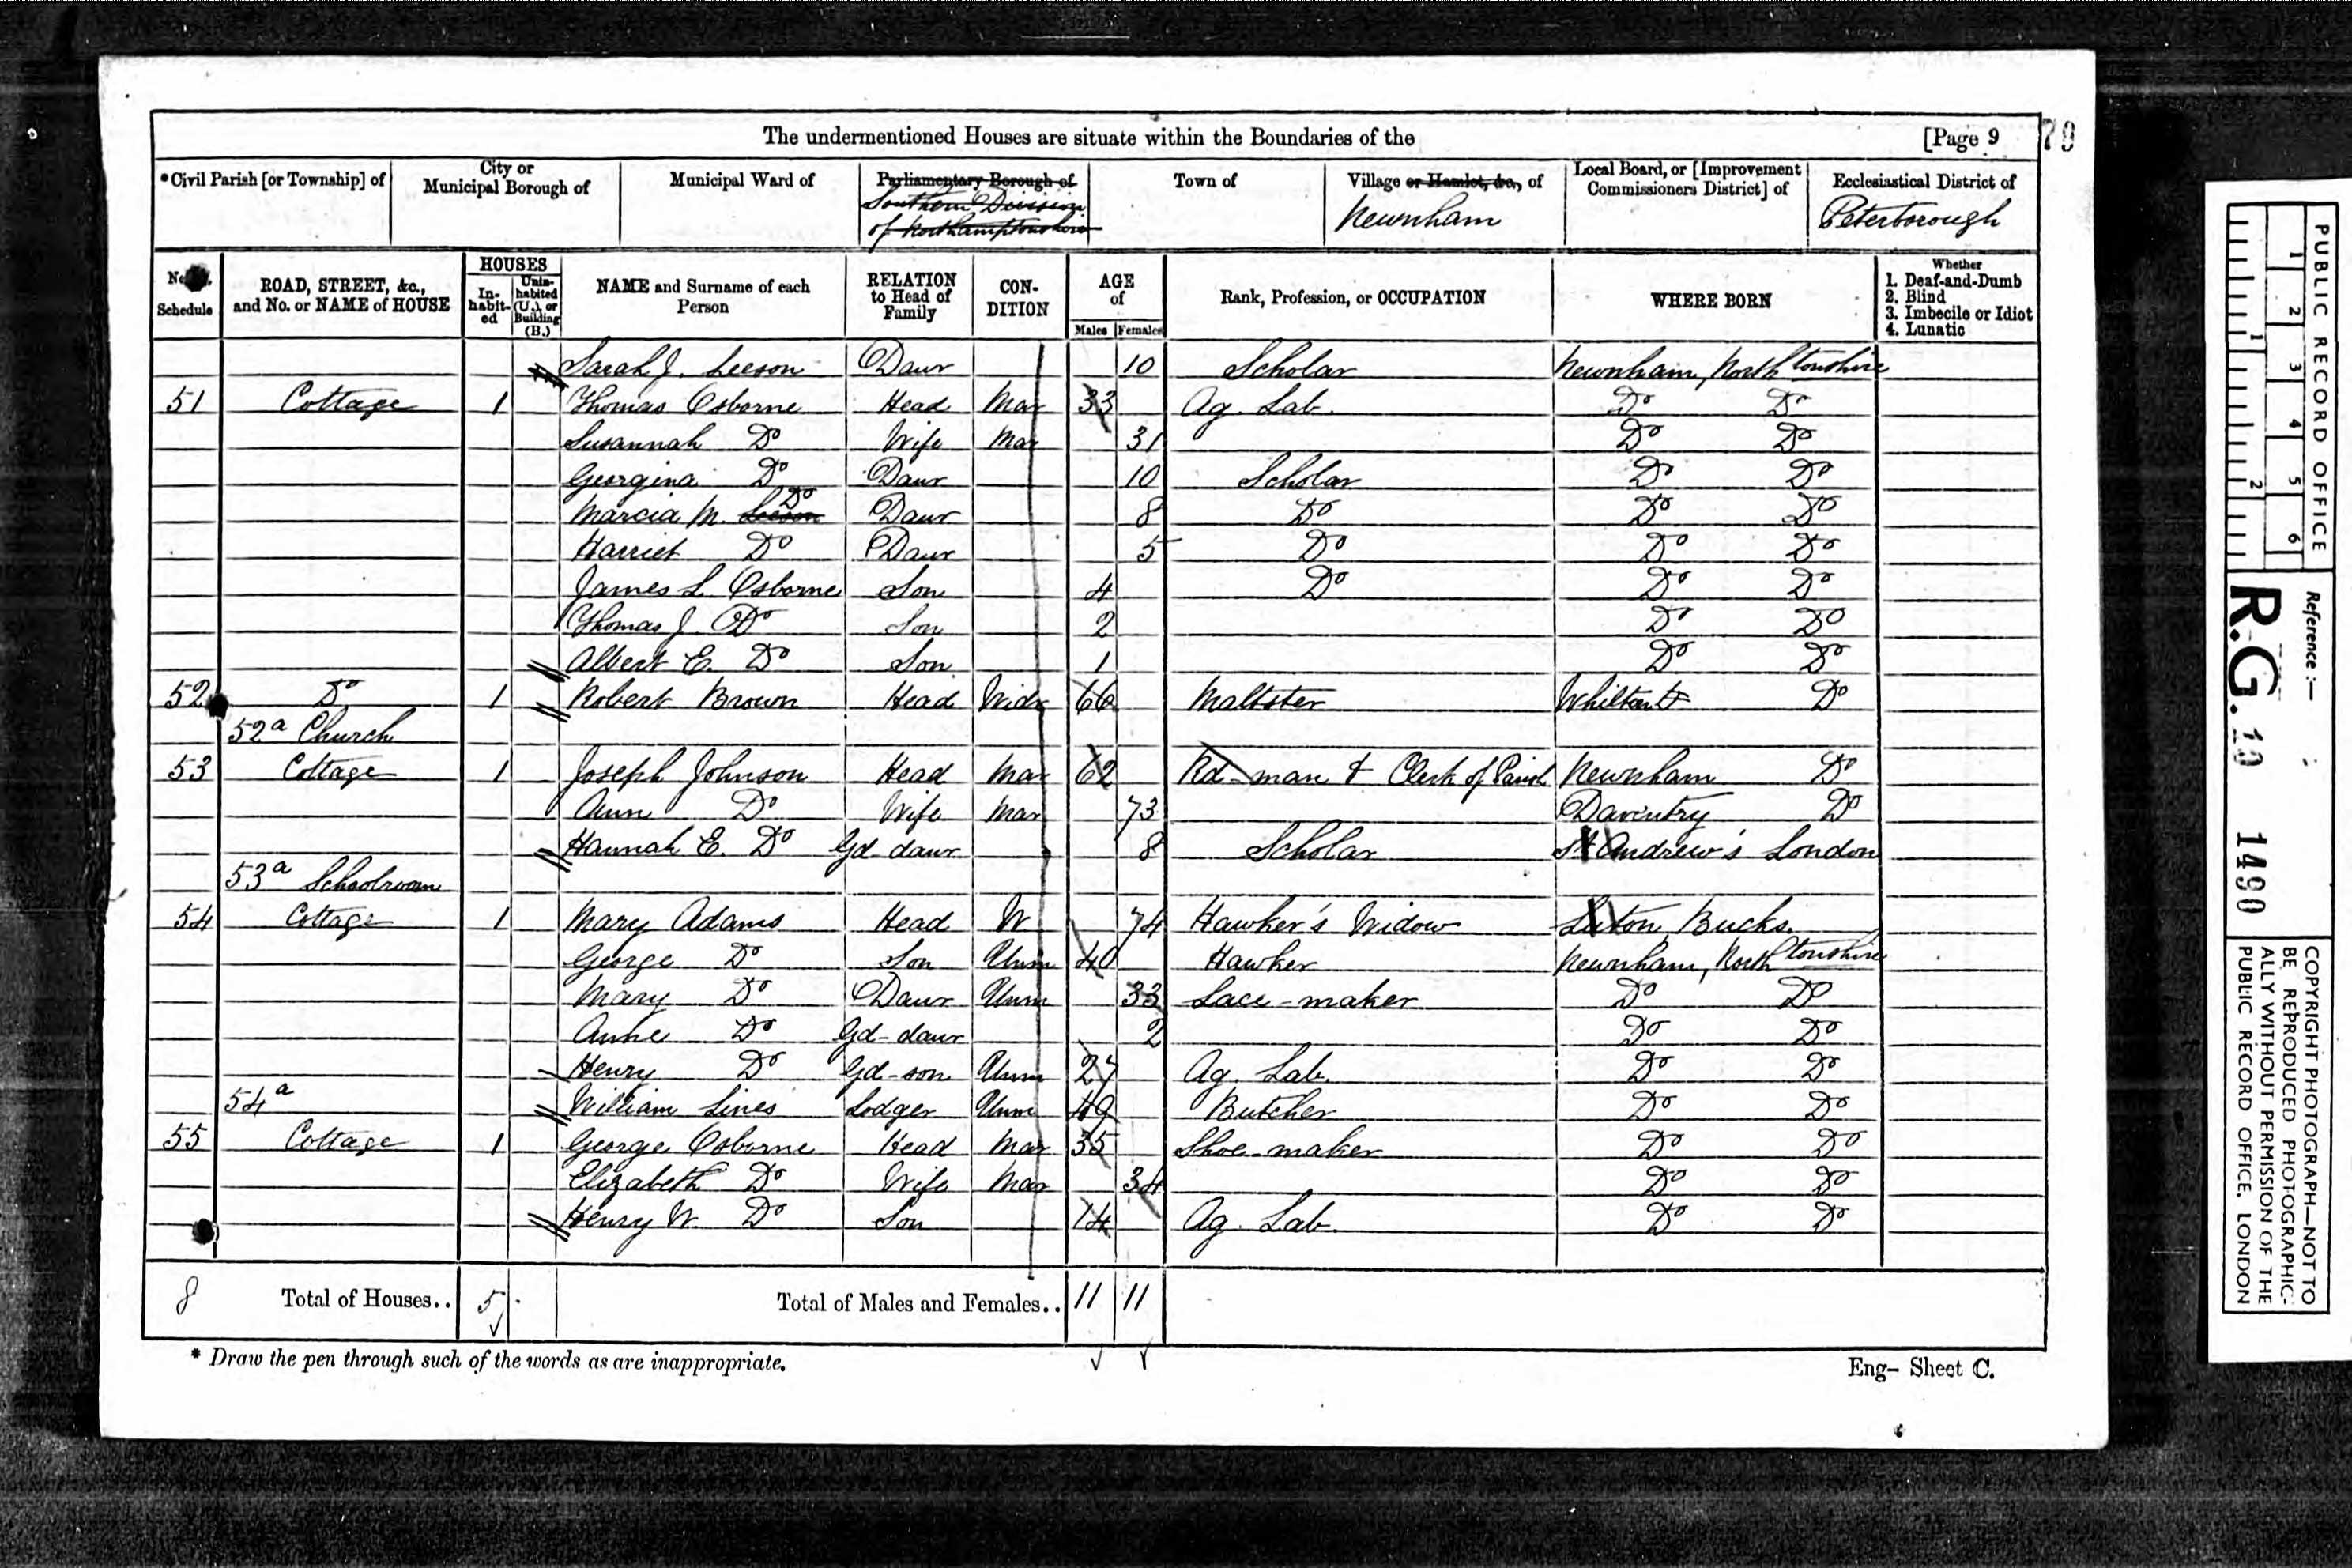 The undermentioned Houses are situate within the Boundaries of the [Page 9
79
*Civil Parish [or Township] of
City or Municipal Borough of
Municipal Ward of
Parliamentary Borough of
Southern Division
of Northamptonshire
Town of
Village or Hamlet, &c., of
Newnham
Local Board, or [Improvement Commissioners District] of
Ecclesiastical District of
Peterborough
No. Schedule
ROAD, STREET, &c., and No. or NAME of HOUSE
HOUSES
In-habit-ed
Unin-habited (U.), or Building (B.)
NAME and Surname of each Person
RELATION to Head of Family
CON-DITION
AGE of
Males Females
Rank, Profession, or OCCUPATION
WHERE BORN
Whether
1. Deaf-and-Dumb
2. Blind
3. Imbecile or Idiot
4. Lunatic
Sarah J. Leeson Daur 10 Scholar Newnham, Northtonshire
51 Cottage 1 Thomas Osborne Head Mar 33 Ag. Lab. Do Do
Susannah Do Wife Mar 31 Do Do
Georgina Do Daur 10 Scholar Do Do
Marcia M. Leeson Do Daur 8 Do Do Do
Harriet Do Daur 5 Do Do Do
James L. Osborne Son 4 Do Do Do
Thomas J. Do Son 2 Do Do
Albert E. Do Son 1 Do Do
52 Do 1 Robert Brown Head Widr 66 Maltster Whilton Do
52a Church
53 Cottage 1 Joseph Johnson Head Mar 62 Rd-man & Clerk of Parish Newnham Do
Ann Do Wife Mar 73 Daventry Do
Hannah E. Do Gd-daur 8 Scholar St Andrew's London
53a Schoolroom
54 Cottage 1 Mary Adams Head W 74 Hawker's Widow Luton Bucks.
George Do Son Unm 40 Hawker Newnham, Northtonshire
Mary Do Daur Unm 33 Lace-maker Do Do
Anne Do Gd-daur 2 Do Do
Henry Do Gd-son Unm 27 Ag. Lab. Do Do
54a William Lines Lodger Unm 49 Butcher Do Do
55 Cottage 1 George Osborne Head Mar 35 Shoe-maker Do Do
Elizabeth Do Wife Mar 34 Do Do
Henry W. Do Son 14 Ag. Lab Do Do
8 Total of Houses.. 5 Total of Males and Females.. 11 11
* Draw the pen through such of the words as are inappropriate.
Eng- Sheet C.
PUBLIC RECORD OFFICE
1 2 3 4 5 6
1 2
Reference:-
R.G. 10 1490
COPYRIGHT PHOTOGRAPH—NOT TO
BE REPRODUCED PHOTOGRAPHIC-
ALLY WITHOUT PERMISSION OF THE
PUBLIC RECORD OFFICE, LONDON